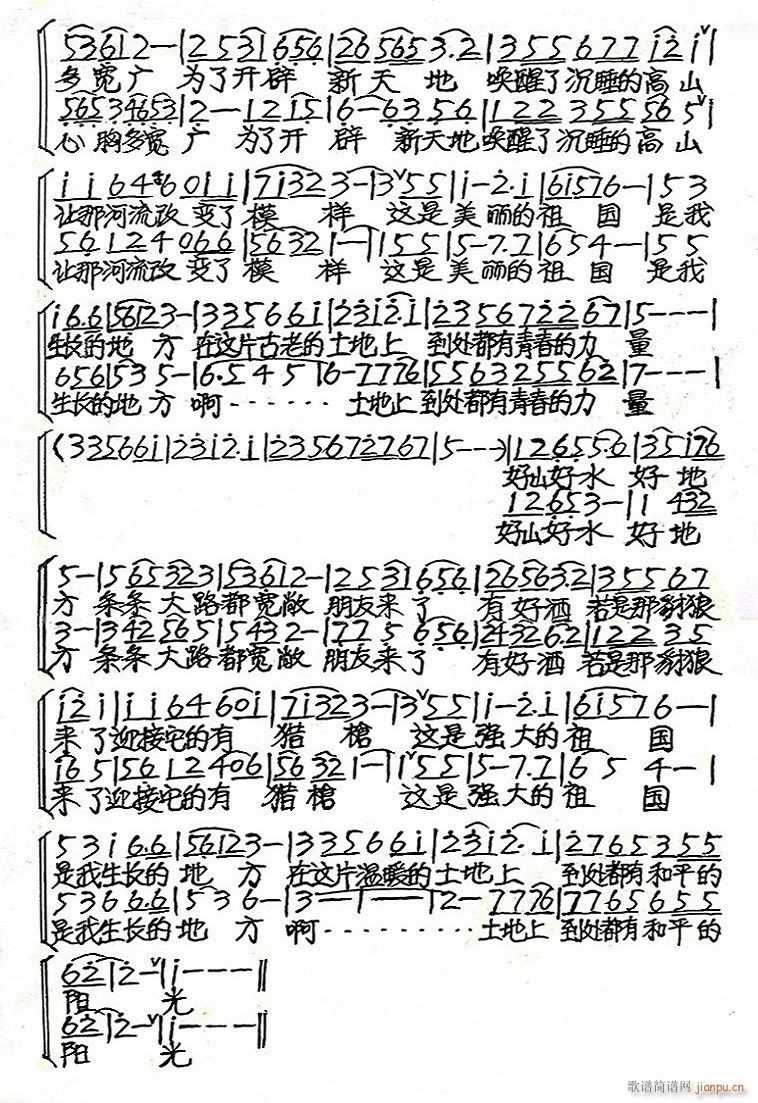 5 3 6 1 2 — | 2 5 3 1 6 5 6 | 2 6 5 6 5 3 . 2 | 3 5 5 6 7 7 i 2 i ∨ |
多宽广 为了开辟 新天地 唤醒了沉睡的高山
5 6 5 3 4 6 5 3 | 2 — 1 2 1 5 | 6 — 6 3 5 6 | 1 2 2 3 5 5 5 6 5 ∨ |
心胸多宽广 为了开辟 新天地唤醒了沉睡的高山
i i 6 4 6 0 i i | 7 i 3 2 3 — | 3 ∨ 5 5 | i — 2 . i | 6 i 5 7 6 — | 5 3
让那河流改变了模样 这是美丽的祖国 是我
5 6 1 2 4 0 6 6 | 5 6 3 2 1 — | 1 5 5 | 5 — 7 . 7 | 6 5 4 — | 5 5
让那河流改变了模样 这是美丽的祖国 是我
i 6 . 6 | 5 6 1 2 3 — | 3 3 5 6 6 i | 2 3 i 2 . i | 2 3 5 6 7 2 2 6 7 | 5 - - - |
生长的地方 在这片古老的土地上 到处都有青春的力量
6 5 6 | 5 3 5 — | 6 . 5 4 5 | 6 — 7 7 7 6 | 5 5 6 3 2 5 5 6 2 | 7 - - - |
生长的地方 啊······ 土地上 到处都有青春的力量
( 3 3 5 6 6 i | 2 3 i 2 . i | 2 3 5 6 7 2 7 6 7 | 5 - - - ) | 1 2 6 5 5 . 6 | 3 5 i 7 6
好山好水 好地
1 2 6 5 3 — | 1 4 3 2
好山好水 好地
5 — | 5 6 5 3 2 3 | 5 3 6 1 2 — | 2 5 3 1 6 5 6 | 2 6 5 6 3 . 2 | 3 5 5 6 7
方 条条大路都宽敞 朋友来了 有好酒 若是那豺狼
3 — | 3 4 2 5 6 5 | 5 4 3 2 — | 7 7 5 6 5 6 | 2 4 3 2 6 . 2 | 1 2 2 3 5
方 条条大路都宽敞 朋友来了 有好酒 若是那豺狼
i 2 i | i i 6 4 6 0 i | 7 i 3 2 3 — | 3 ∨ 5 5 | i — 2 . i | 6 i 5 7 6 — |
来了迎接它的有猎枪 这是强大的祖国
i 6 5 | 5 6 1 2 4 0 6 | 5 6 3 2 1 — | 1 ∨ 5 5 | 5 — 7 . 7 | 6 5 4 — |
来了迎接它的有猎枪 这是强大的祖国
5 3 i 6 . 6 | 5 6 1 2 3 — | 3 3 5 6 6 i | 2 3 i 2 . i | 2 7 6 5 3 5 5
是我生长的地方 在这片温暖的土地上 到处都有和平的
5 3 6 6 . 6 | 5 3 6 — | 3 — | — | 2 — 7 7 7 6 | 7 7 6 5 6 5 5
是我生长的地方 啊·········土地上 到处都有和平的
6 2 | 2 — ∨ | i - - - ‖
阳光
6 2 | 2 — ∨ | i - - - ‖
阳光
歌谱简谱网 jianpu.cn